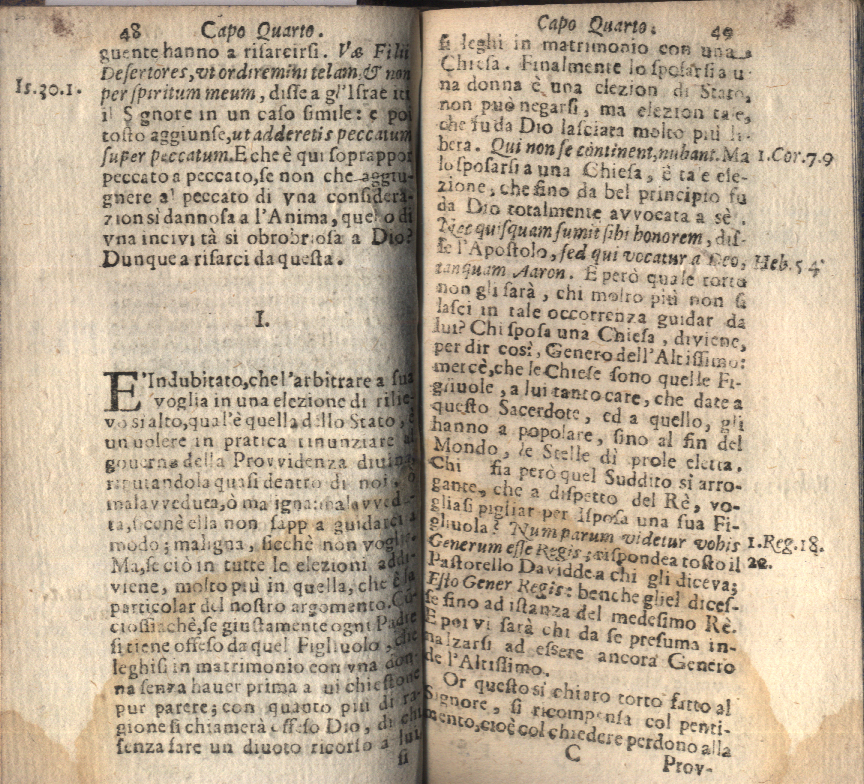 48 Capo Quarto.
guente hanno a risarcirsi. Væ Filii
Desertores, vt ordiremini telam, & non
Is. 30. 1.
per spiritum meum, disse a gl'Israe iti
il S gnore in un caso simile: e poi
tosto aggiunse, ut adderetis peccatum
super peccatum. E che è qui soprappor
peccato a peccato, se non che aggiu-
gnere al peccato di vna considera-
zion sì dannosa a l'Anima, quel o di
vna incivi tà si obrobriosa a Dio?
Dunque a risarci da questa.
I.
E' Indubitato, che l'arbitrare a sua
voglia in una elezione di rilie-
vo sì alto, qual'è quella dello Stato, è
un uolere in pratica rinunziare al
governo della Provvidenza diuina
riputandola quasi dentro di noi, ò
malavveduta, ò maligna: malavvedu-
ta, sicchè ella non sapp a guidarci a
modo; maligna, sicchè non voglia.
Ma, se ciò in tutte le elezioni addi-
viene, molto più in quella, che è la
particolar del nostro argomento. Con-
ciossiachè, se giustamente ogni Padre
si tiene offeso da quel Figliuolo, che
leghisi in matrimonio con vna don-
na senza hauer prima a ui chiestone
pur parere; con quanto più di ra-
gione si chiamerà offeso Dio, di chi
senza fare un diuoto ricorso a lui
si
Capo Quarto. 49
si leghi in matrimonio con una
Chiesa. Finalmente lo sposarsi a u-
na donna è una elezion di Stato,
non può negarsi, ma elezion tale,
che fu da Dio lasciata molto più li-
bera. Qui non se continent, nubant. Ma
1. Cor. 7. 9
lo sposarsi a una Chiesa, è ta e ele-
zione, che fino da bel principio fu
da Dio totalmente avvocata a sè.
Nec quisquam sumit sibi honorem, dis-
se l'Apostolo, sed qui vocatur a Deo,
Heb. 5 4
tanquam Aaron. E però quale torto
non gli farà, chi molto più non si
lasci in tale occorrenza guidar da
lui? Chi sposa una Chiesa, diviene,
per dir così, Genero dell'Altissimo:
mercè, che le Chiese sono quelle Fi-
gliuole, a lui tanto care, che date a
questo Sacerdote, ed a quello, gli
hanno a popolare, sino al fin del
Mondo, le Stelle di prole eletta.
Chi fia però quel Suddito si arro-
gante, che a dispetto del Rè, vo-
glia si pigliar per isposa una sua Fi-
gliuola? Num parum videtur vobis
1. Reg. 18.
Generum esse Regis; rispondea tosto il
22.
Pastorello Davidde a chi gli diceva;
Esto Gener Regis: benche gliel dices-
se fino ad istanza del medesimo Rè.
E poi vi sarà chi da se presuma in-
nalzarsi ad essere ancora Genero
de l'Altissimo.
Or questo sì chiaro torto fatto al
Signore, si ricompensa col penti-
mento, cioè col chiedere perdono alla
C Prov-